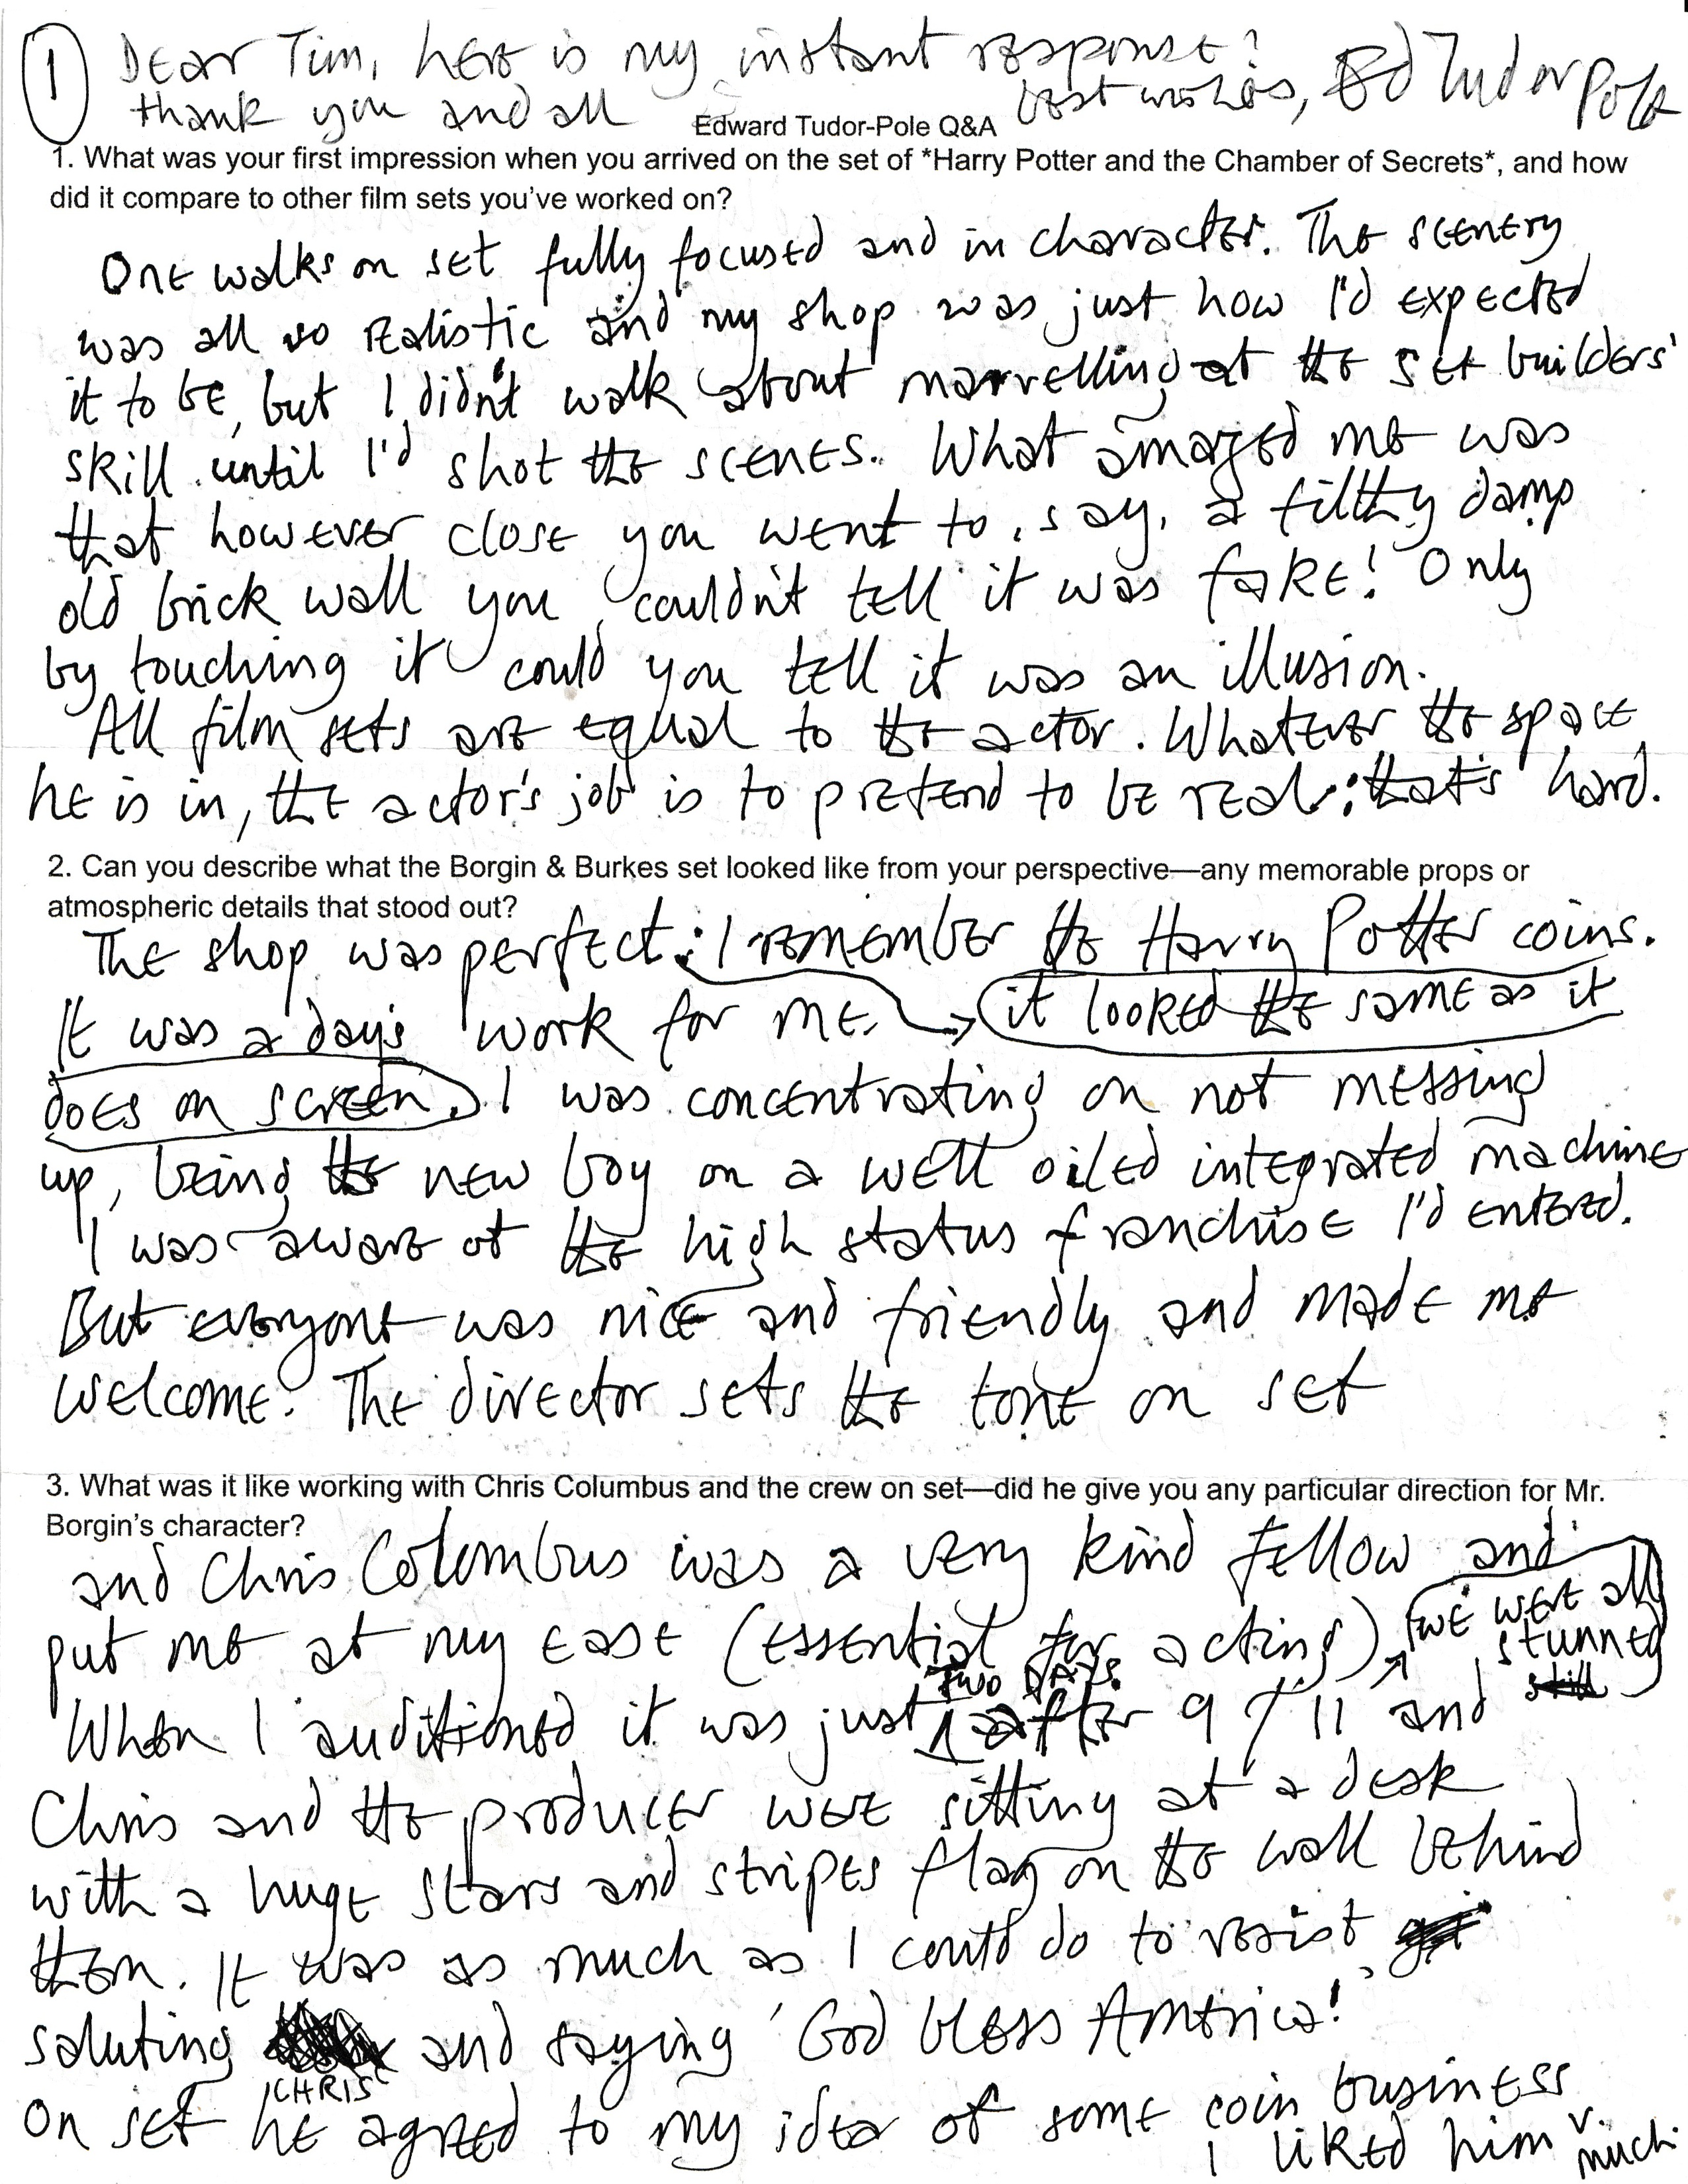 1
Dear Tim, here is my instant response!
thank you and all best wishes, Ed Tudor Pole
Edward Tudor-Pole Q&A
1. What was your first impression when you arrived on the set of *Harry Potter and the Chamber of Secrets*, and how
did it compare to other film sets you've worked on?
One walks on set fully focused and in character. The scenery
was all so realistic and my shop was just how I'd expected
it to be, but I didn't walk about marvelling at the set builders'
skill until I'd shot the scenes. What amazed me was
that however close you went to, say, a filthy damp
old brick wall you couldn't tell it was fake! Only
by touching it could you tell it was an illusion.
All film sets are equal to the actor. Whatever the space
he is in, the actor's job is to pretend to be real: that's hard.
2. Can you describe what the Borgin & Burkes set looked like from your perspective—any memorable props or
atmospheric details that stood out?
The shop was perfect: I remember the Harry Potter coins.
It was a day's work for me. it looked the same as it
does on screen. I was concentrating on not messing
up, being the new boy on a well oiled integrated machine
I was aware of the high status franchise I'd entered.
But everyone was nice and friendly and made me
welcome. The director sets the tone on set
3. What was it like working with Chris Columbus and the crew on set—did he give you any particular direction for Mr.
Borgin's character?
and Chris Colombus was a very kind fellow and
put me at my ease (essential for acting) we were all
stunned
When I auditioned it was just two days after 9/11 and still
Chris and the producer were sitting at a desk
with a huge stars and stripes flag on the wall behind
them. It was as much as I could do to resist
saluting and saying 'God bless America!'
CHRIS
On set he agreed to my idea of some coin business
I liked him v. much.